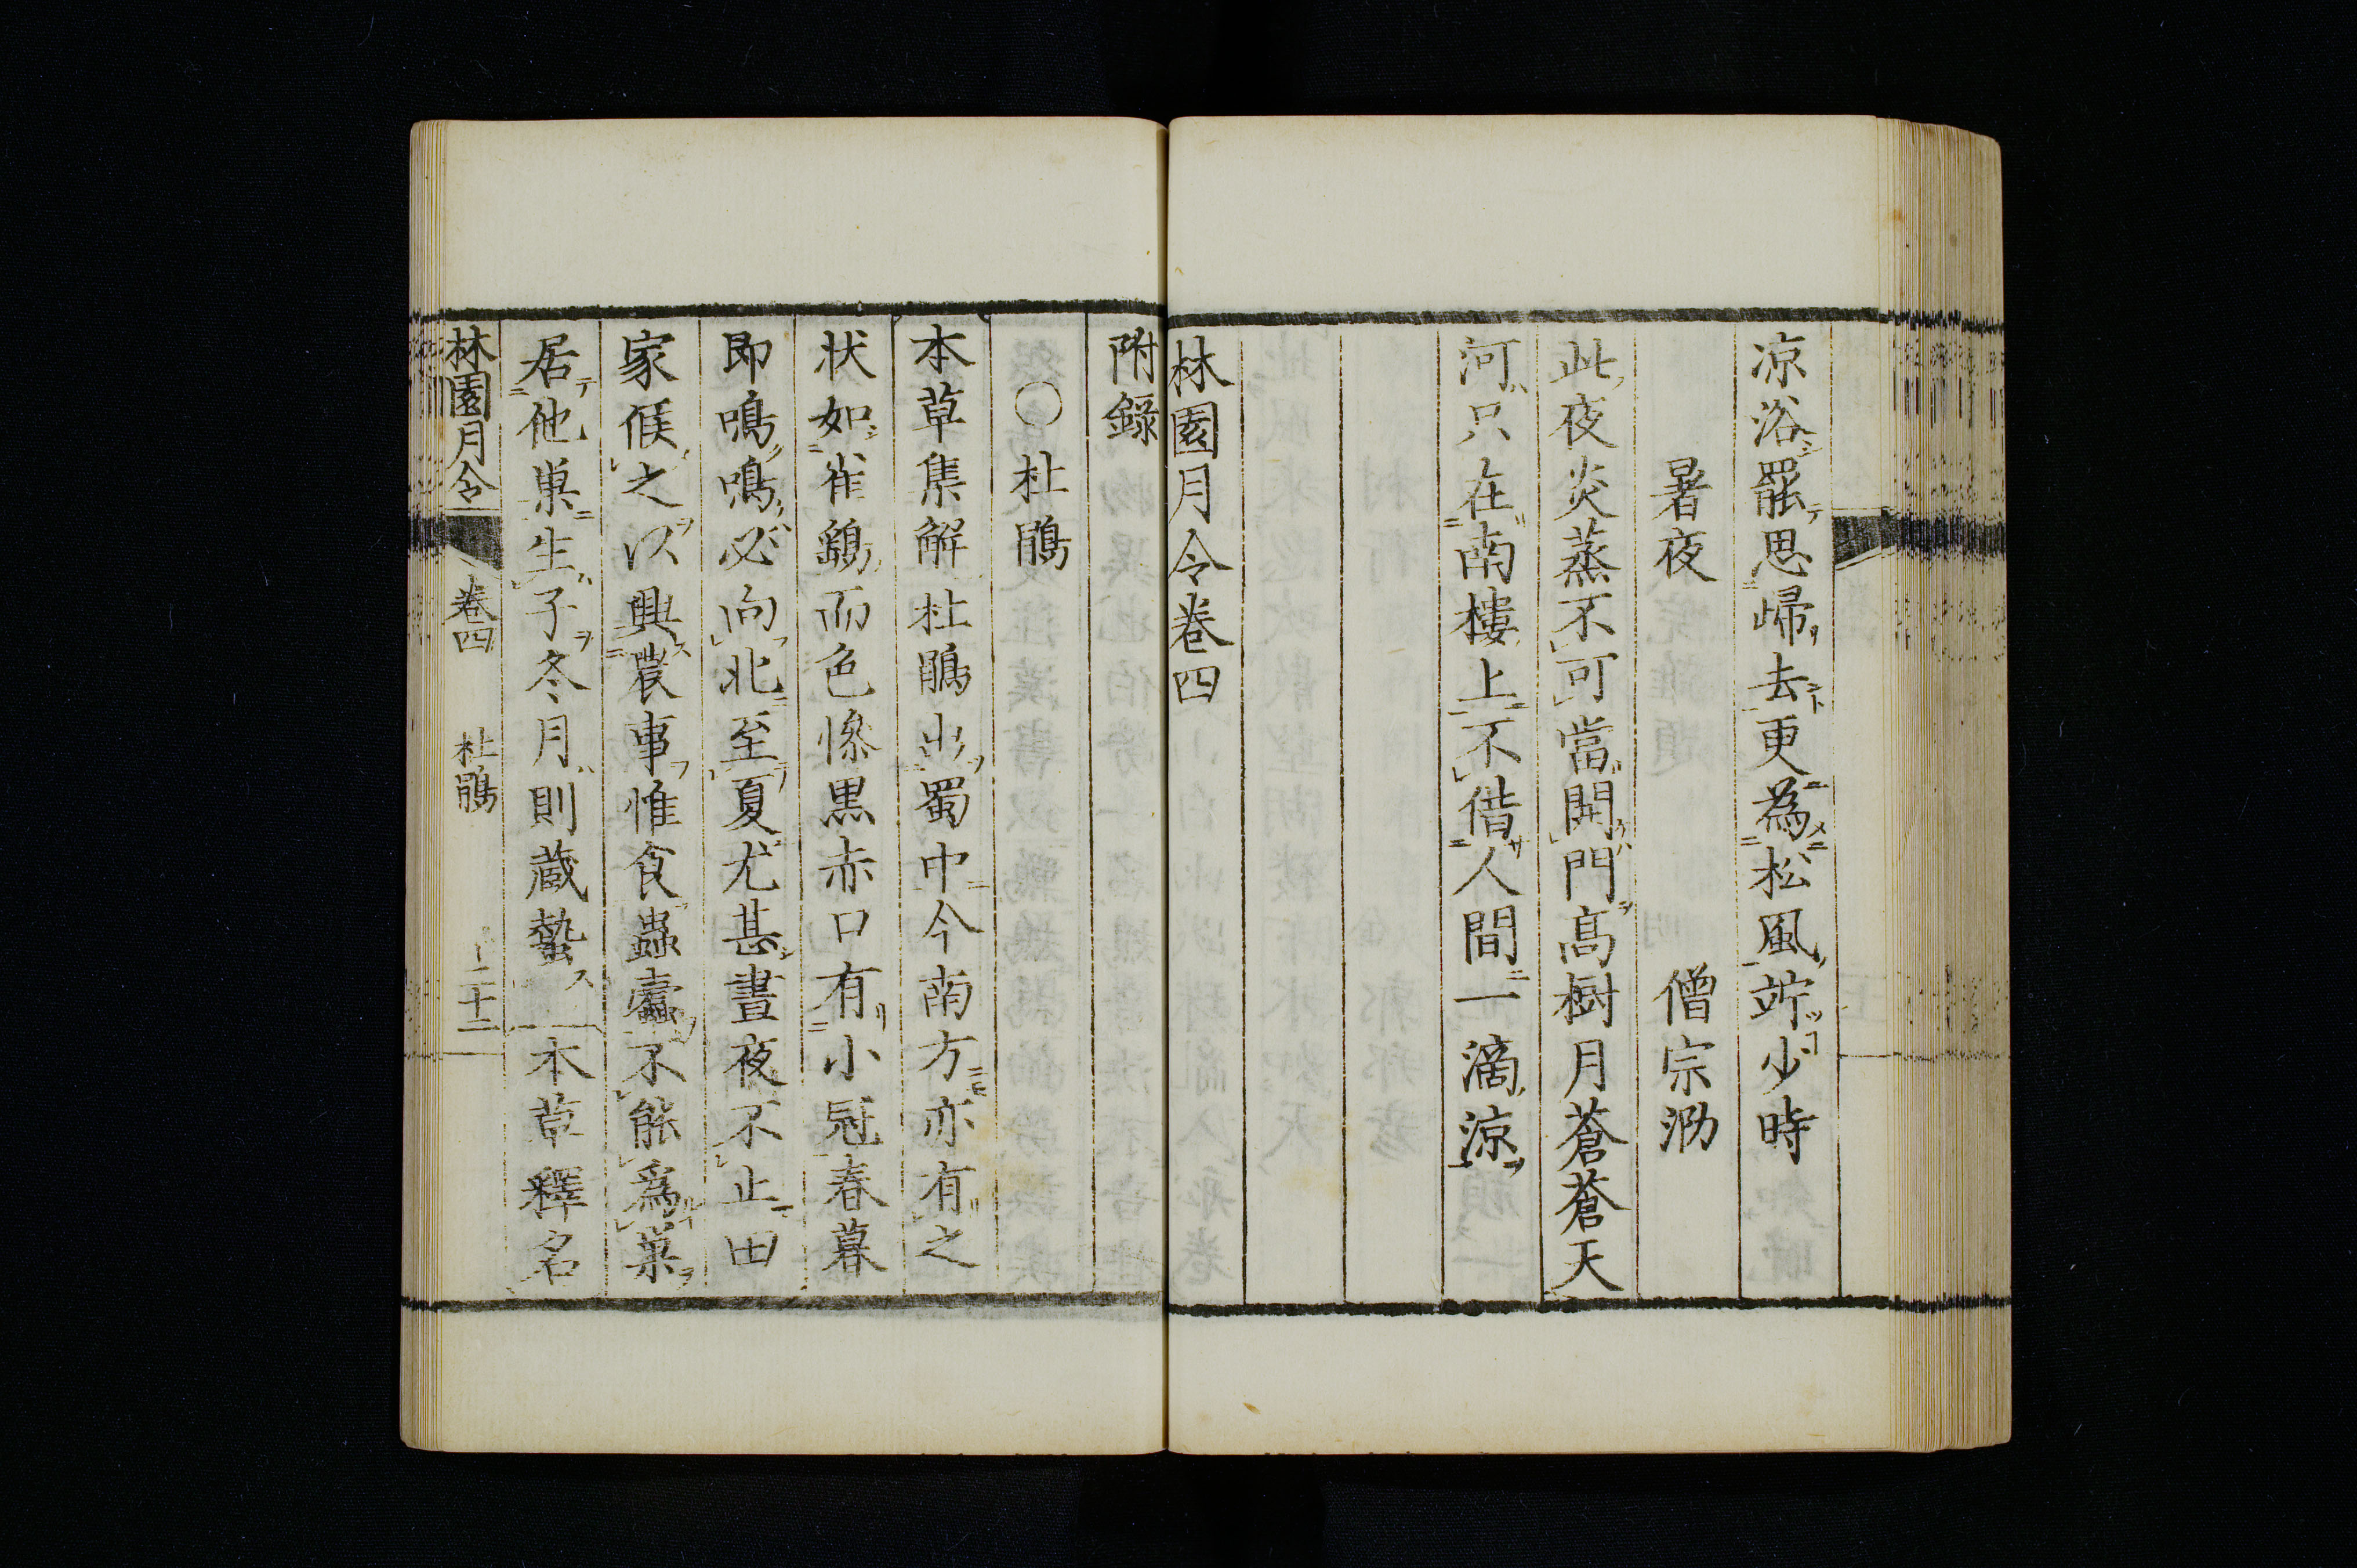 凉浴罷思歸去更為松風竚少時
暑夜　僧宗泐
此夜炎蒸不可當開門高樹月蒼蒼天
河只在南樓上不借人間一滴涼
林園月令卷四
附錄
〇杜鵑
本草集解杜鵑出蜀中今南方亦有之
狀如雀鷂而色慘黒赤口有小冠春暮
即鳴鳴必向北至夏尤甚晝夜不止田
家候之以興農事惟食蟲蠹不能爲巢
居他巢生子冬月則蔵蟄　本草釋名
林園月令　卷四　杜鵑　二十二